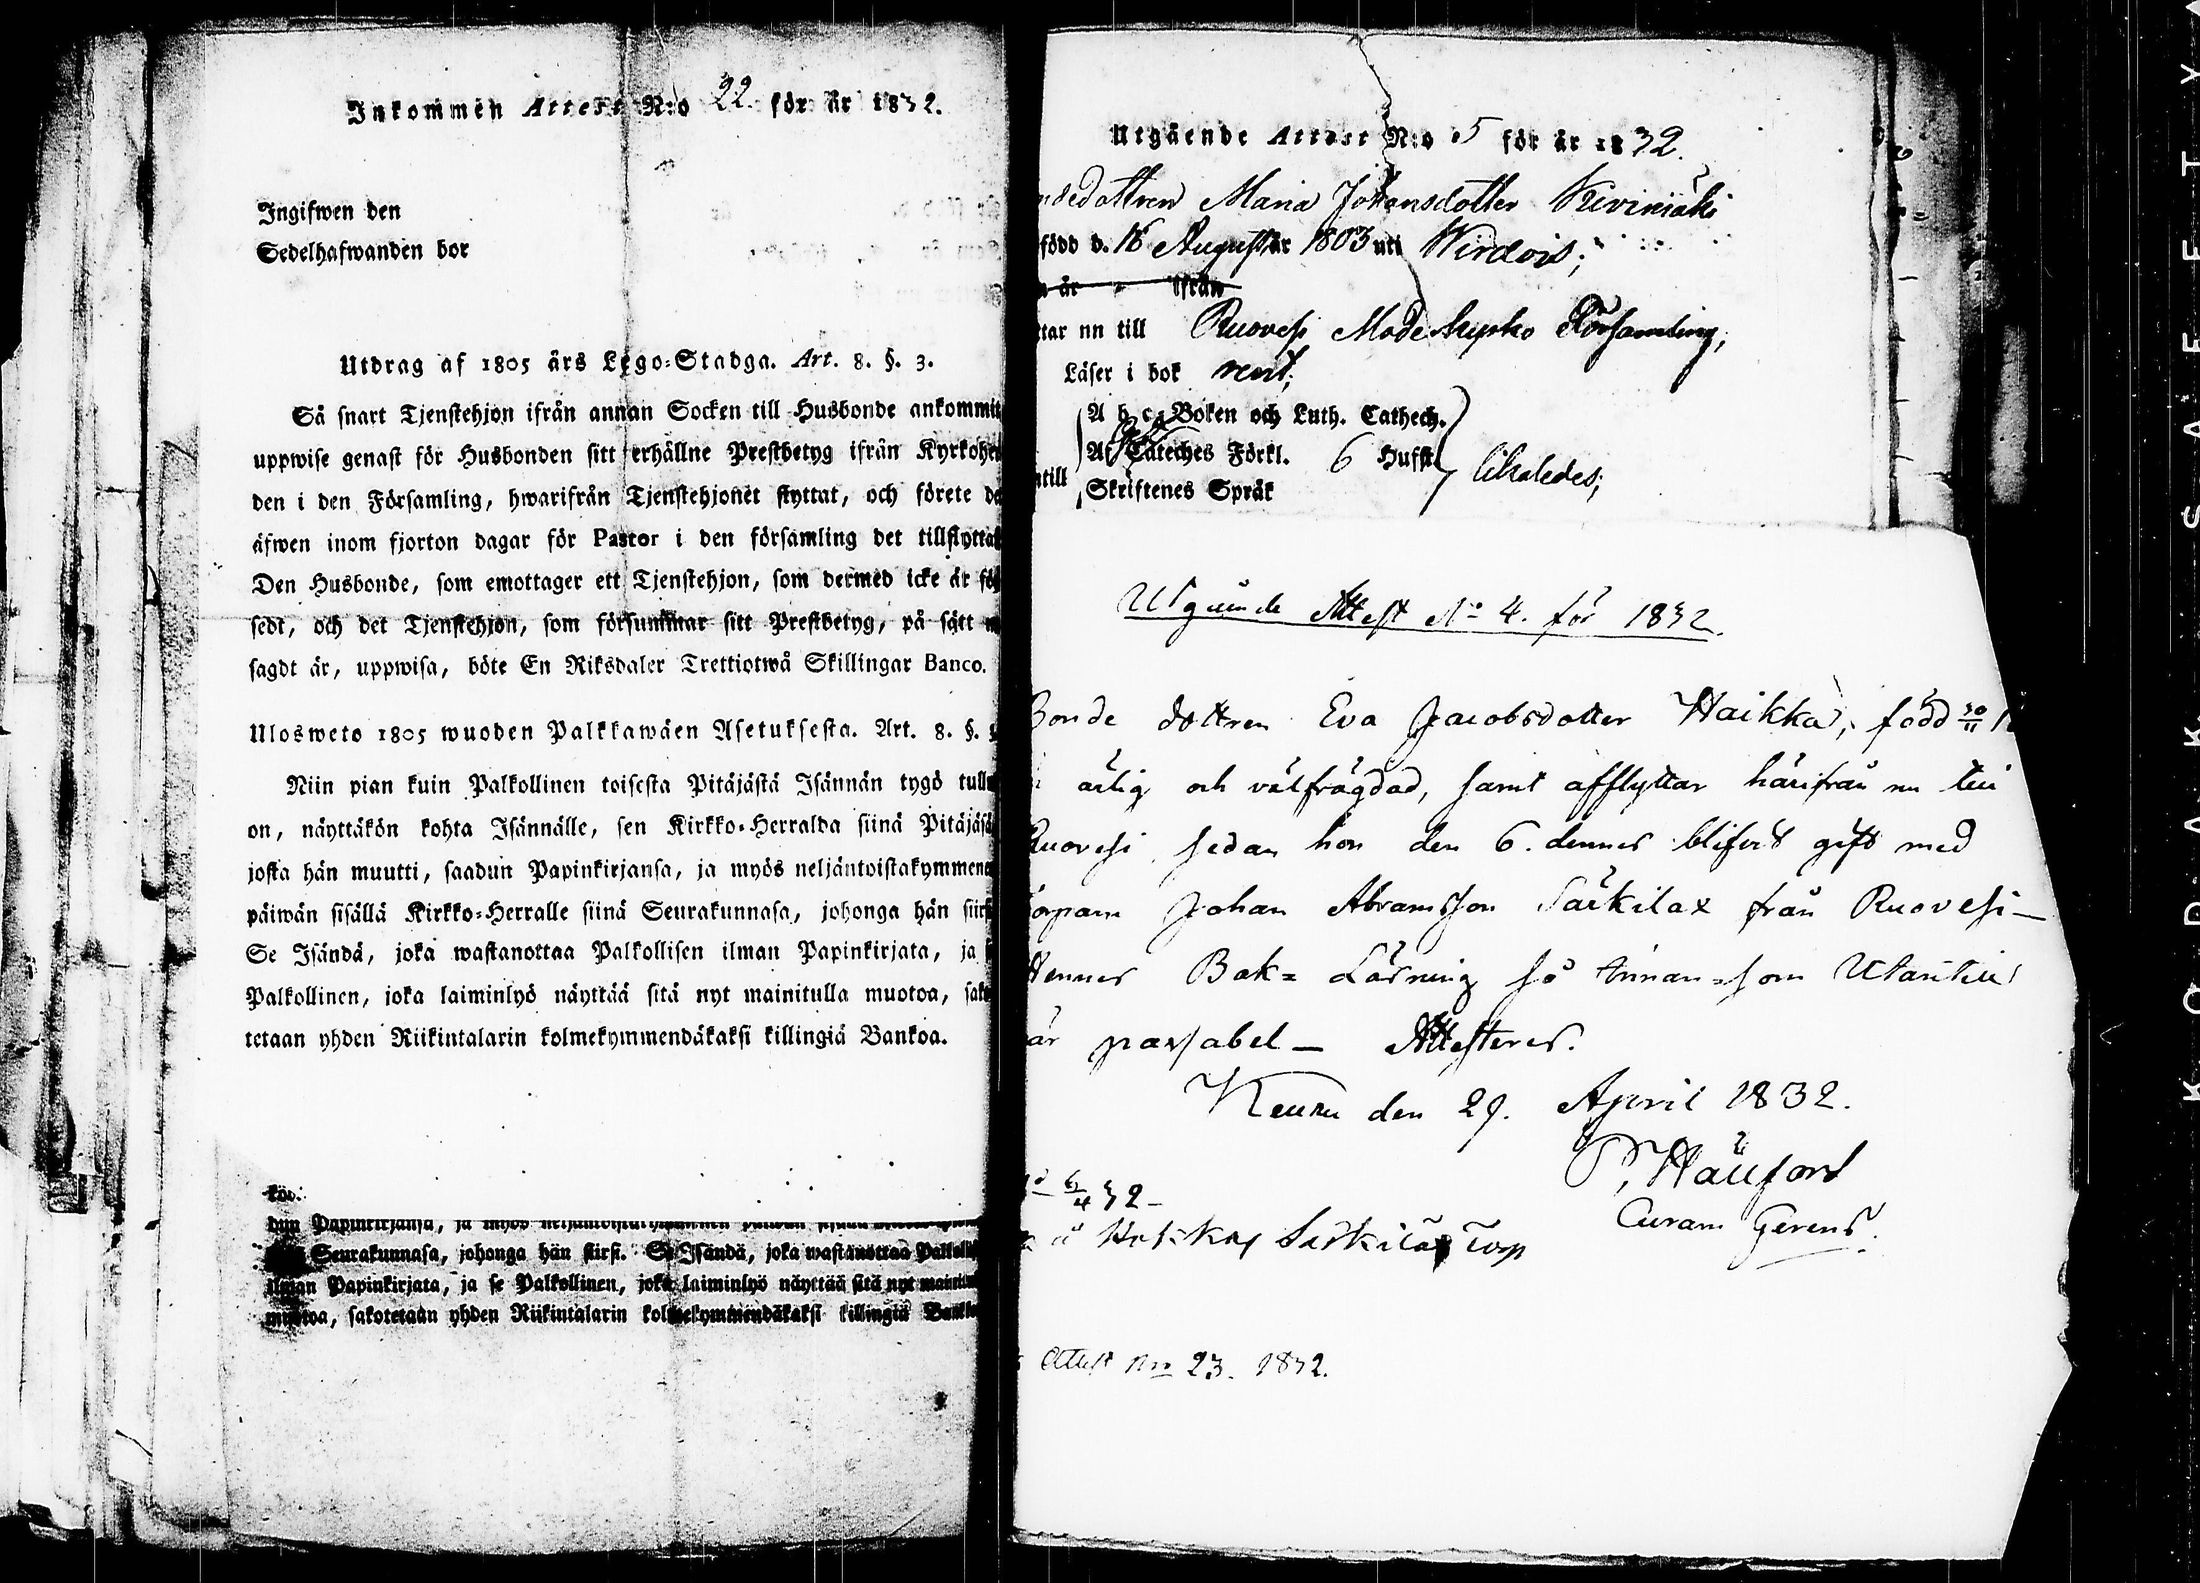 Inkommen Attest N:o 22. för år 1832.
Ingifwen den
Sedelhafwanden bor
Utdrag af 1805 års Lego-Stadga. Art. 8. §. 3.
Så snart Tjenstehjon ifrån annan Socken till Husbonde ankommit
uppwise genast för Husbonden sitt erhållne Prestbetyg ifrån Kyrkohe
den i den Församling, hwarifrån Tjenstehjonet flyttat, och förete de
äfwen inom fjorton dagar för Pastor i den församling det tillflyttat
Den Husbonde, som emottager ett Tjenstehjon, som dermed icke är för
sedt, och det Tjenstehjon, som försummar sitt Prestbetyg, på sätt
sagdt är, uppwisa, böte En Riksdaler Trettiotwå Skillingar Banco.
Ulosweto 1805 wuoden Palkkawäen Asetuksesta. Art. 8. §.
Niin pian kuin Palkollinen toisesta Pitäjästä Isännän tygö tullu
on, näyttäkön kohta Isännälle, sen Kirkko-Herralda siinä Pitäjäsä
josta hän muutti, saadun Papinkirjansa, ja myös neljäntoistakymmene
päiwän sisällä Kirkko-Herralle siinä Seurakunnasa, johonga hän siirs
Se Isändä, joka wastanottaa Palkollisen ilman Papinkirjata, ja
Palkollinen, joka laiminlyö näyttää sitä nyt mainitulla muotoa, sako
tetaan yhden Riikintalarin kolmekymmendäkaksi killingiä Bankoa.
köö.
dun Papinkirjansa, ja myös neljäntoistakymmenen päiwän sisällä
Seurakunnasa, johonga hän siirsi. Se Isändä, joka wastanottaa Palkolli
ilman Papinkirjata, ja se Palkollinen, joka laiminlyö näyttää sitä nyt mainitu
muotoa, sakotetaan yhden Riikintalarin kolmekymmendäkaksi killingiä Banko
Utgående Attest N:o 5 för år 1832.
ndedottren Maria Johansdotter Kivimäki
född d. 16 August år 1803 uti Wirdois;
år ifrån
ttar nu till Ruovesi Moderkyrko Församling;
Läser i bok rent;
A b c-Boken och Luth. Cathech.
Af Cateches Förkl. 6 Hufst.
ntill Skriftenes Språk likaledes;
Utgående Attest No 4. för 1832.
Bonde dottren Eva Jacobsdotter Haikka, född 30/11 1
ärlig och välfrägdad, samt afflyttar härifrån nu till
Ruovesi sedan hon den 6. dennes blifvit gift med
Torparn Johan Abramsson Särkilax från Ruovesi —
Hennes Bok-Läsning så Innan-som Utantill
är passabel — Attesteres.
Keuru den 29. April 1832.
P, Hällfors
Curam Gerens.
32 —
Särkilax Torp
Attest No 23. 1832.
KODAK SAFETY